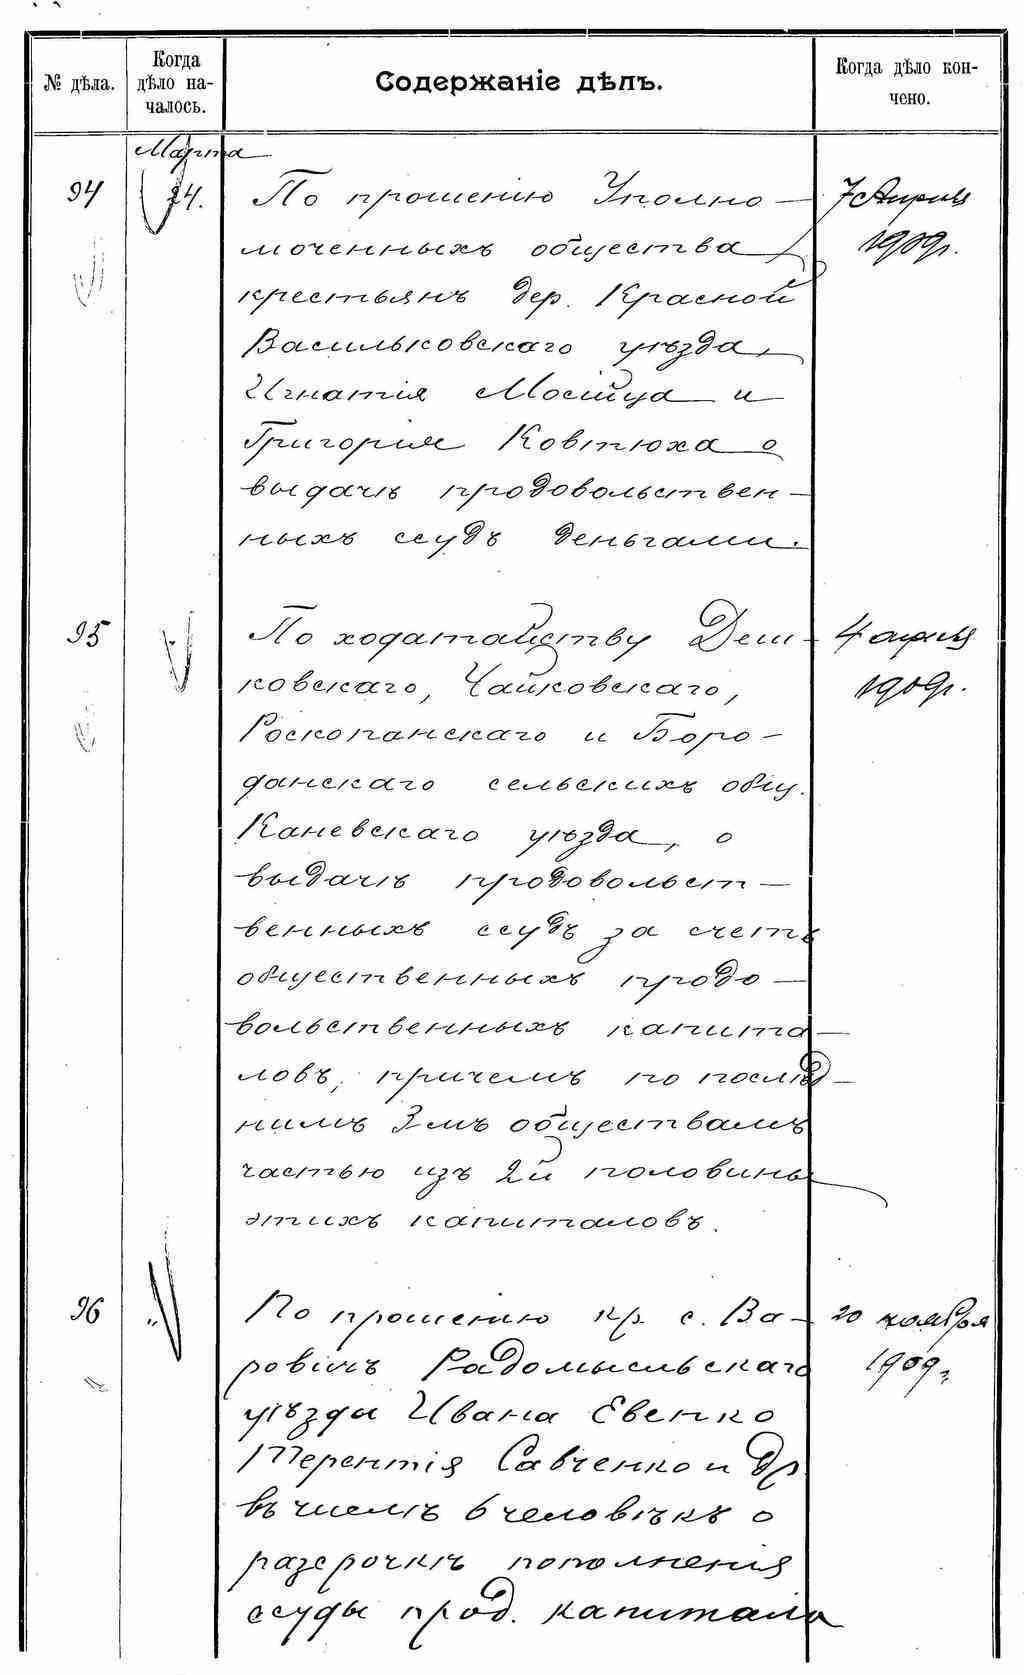 № дѣла.
Когда дѣло началось.
Содержаніе дѣлъ.
Когда дѣло кончено.
Марта
94
24.
По прошенію Уполно-
7 Апрѣля
моченныхъ общества
1909г.
крестьянъ дер. Красной
Васильковскаго уѣзда,
Игнатія Мосійца и
Григорія Ковтюха о
выдачѣ продовольствен-
ныхъ ссудъ деньгами.
95
По ходатайству Деш-
4 апрѣля
ковскаго, Чайковскаго,
1909г.
Роскопанскаго и Боро-
данскаго сельскихъ общ.
Каневскаго уѣзда, о
выдачѣ продовольст-
венныхъ ссудъ за счетъ
общественныхъ продо-
вольственныхъ капита-
ловъ, причемъ по послѣд-
нимъ 3мъ обществамъ
частью изъ 2й половины
этихъ капиталовъ.
96
"
По прошенію кр. с. Ва-
20 ноября
ровичъ Радомысльскаго
1909г.
уѣзда Ивана Евенко
Терентія Савченко и др.
въ числѣ 6 человѣкъ о
разсрочкѣ пополненія
ссуды прод. капитала